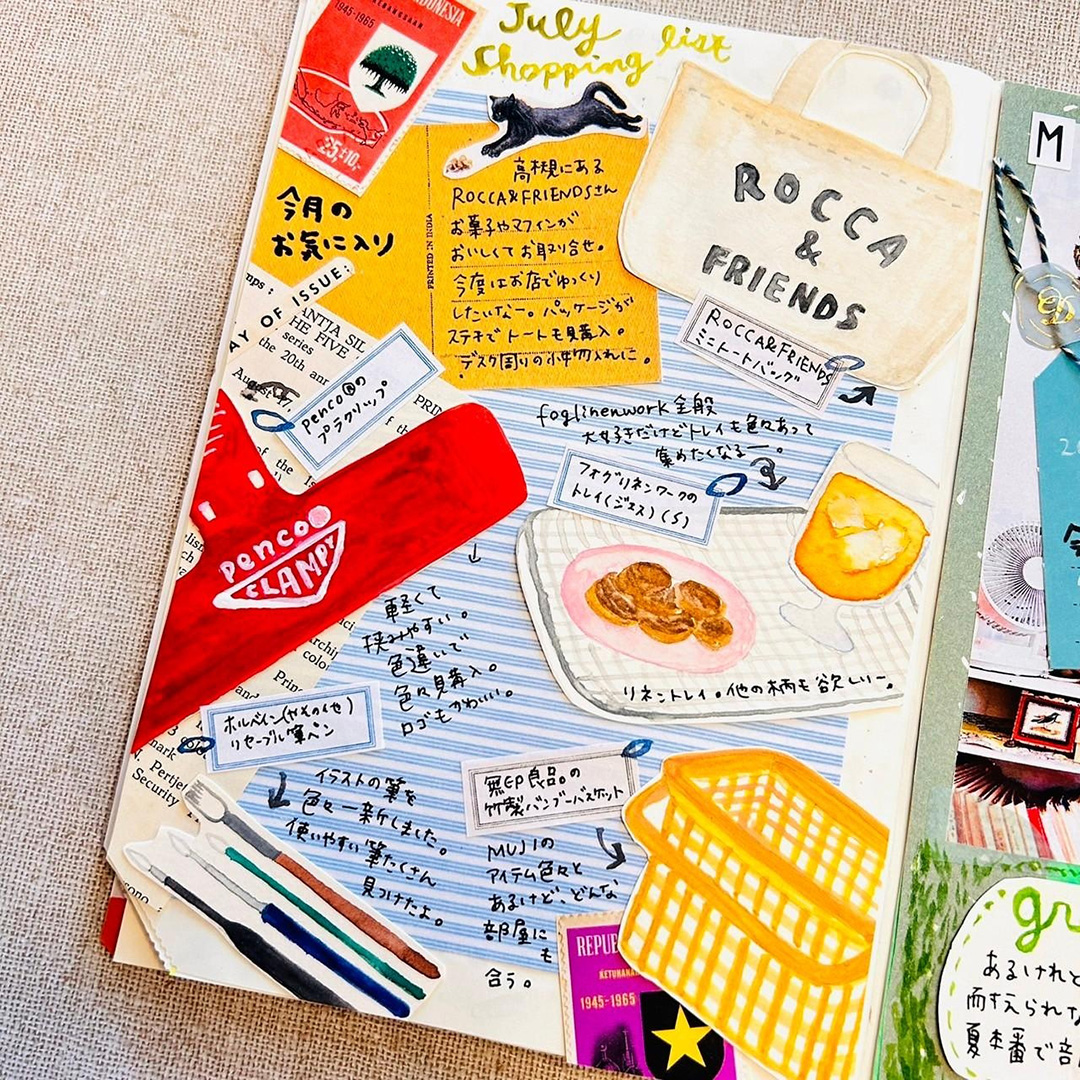 July
Shopping list
INDONESIA
1945-1965
KEBANGSAAN
25,+10,-
今月の
お気に入り
PRINTED IN INDIA
高槻にある
ROCCA&FRIENDSさん
お菓子やマフィンが
おいしくてお取り合せ。
今度はお店でゆっくり
したいなー。パッケージが
ステキでトートも見購入。
デスク周りの小物入れに。
ROCCA
&
FRIENDS
ROCCA&FRIENDS
ミニトートバッグ
AY OF ISSUE:
ANTJA SIL
HE FIVE
series
the 20th
August 17,
penco®の
プラクリップ
penco
CLAMPY
軽くて
挟みやすい。
色違いで
色々見購入。
ロゴもかわいい。
foglinenwork全般
大好きだけどトレイも色々あって
集めたくなるー。
フォグリネンワークの
トレイ(ジズス)(S)
リネントレイ。他の柄も欲しいー。
ホルベイン(やその他)
リセーブル筆ペン
イラストの筆を
色々一新しました。
使いやすい筆たくさん
見つけたよ。
mark
Pertje
Security
無印良品。の
竹製バンブーバスケット
MUJIの
アイテム色々と
あるけど、どんな
部屋に
も
合う。
REPU
KETUHANAN
1945-1965
M
gr
あるけれど
耐えられな
夏本番で